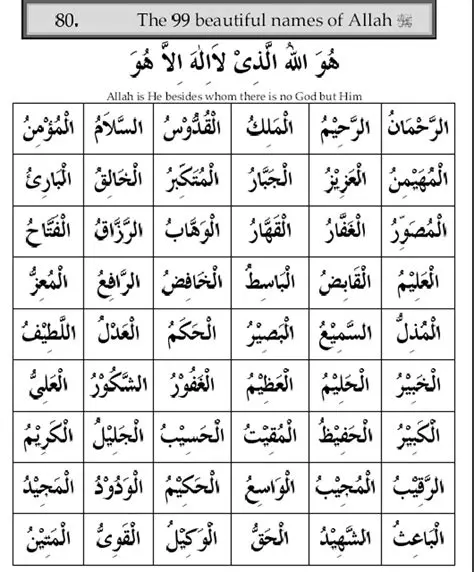 80. The 99 beautiful names of Allah ﷻ
هُوَ اللهُ الَّذِىْ لَااِلٰهَ اِلاَّ هُوَ
Allah is He besides whom there is no God but Him
الرَّحْمَانُ الرَّحِيْمُ الْمَلِكُ الْقُدُّوْسُ السَّلَامُ الْمُؤْمِنُ
الْمُهَيْمِنُ الْعَزِيْزُ الْجَبَّارُ الْمُتَكَبِّرُ الْخَالِقُ الْبَارِئُ
الْمُصَوِّرُ الْغَفَّارُ الْقَهَّارُ الْوَهَّابُ الرَّزَّاقُ الْفَتَّاحُ
الْعَلِيْمُ الْقَابِضُ الْبَاسِطُ الْخَافِضُ الرَّافِعُ الْمُعِزُّ
الْمُذِلُّ السَّمِيْعُ الْبَصِيْرُ الْحَكَمُ الْعَدْلُ اللَّطِيْفُ
الْخَبِيْرُ الْحَلِيْمُ الْعَظِيْمُ الْغَفُوْرُ الشَّكُوْرُ الْعَلِىُّ
الْكَبِيْرُ الْحَفِيْظُ الْمُقِيْتُ الْحَسِيْبُ الْجَلِيْلُ الْكَرِيْمُ
الرَّقِيْبُ الْمُجِيْبُ الْوَاسِعُ الْحَكِيْمُ الْوَدُوْدُ الْمَجِيْدُ
الْبَاعِثُ الشَّهِيْدُ الْحَقُّ الْوَكِيْلُ الْقَوِىُّ الْمَتِيْنُ